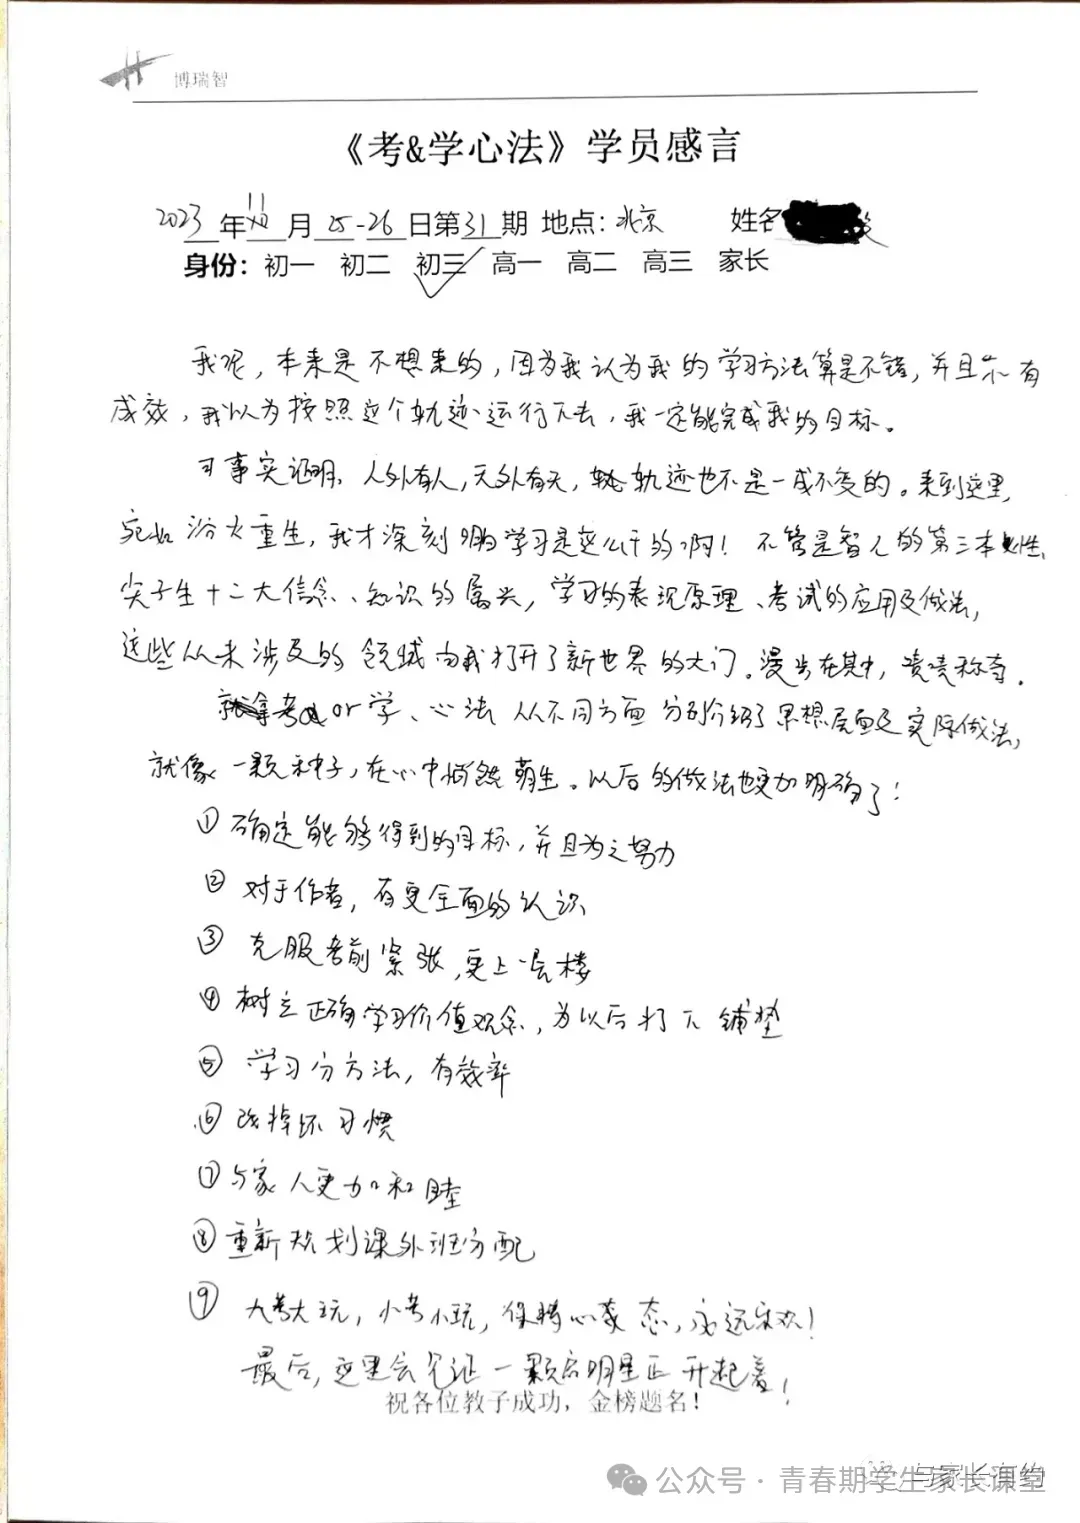 博瑞智
《考&学心法》学员感言
2023年11月25-26日第31期 地点：北京 姓名
身份：初一 初二 初三 高一 高二 高三 家长
我呢，本来是不想来的，因为我认为我的学习方法算是不错，并且小有
成效，我以为按照这个轨迹运行下去，我一定能完成我的目标。
可事实证明，人外有人，天外有天，轨迹也不是一成不变的。来到这里，
宛如浴火重生，我才深刻明白学习是这么干的啊！不管是智人的第三本性、
尖子生十二大信念、知识的属兴，学习的表现原理、考试的应用及做法，
这些从未涉及的领域向我打开了新世界的大门。漫步在其中，啧啧称奇。
or学、心法从不同方面分别介绍了思想层面及实际做法，
就像一颗种子，在心中悄然萌生。以后的做法也更加明确了！
①确定能够得到的目标，并且为之努力
②对于作者，有更全面的认识
③克服考前紧张，更上一层楼
④树立正确学习价值观念，为以后打下铺垫
⑤学习分方法，有效率
⑥改掉坏习惯
⑦与家人更加和睦
⑧重新规划课外班分配
⑨大考大玩，小考小玩，保持心态，永远乐观！
最后，这里会见证一颗启明星正升起着！
祝各位教子成功，金榜题名！
与家长有约
公众号·青春期学生家长课堂